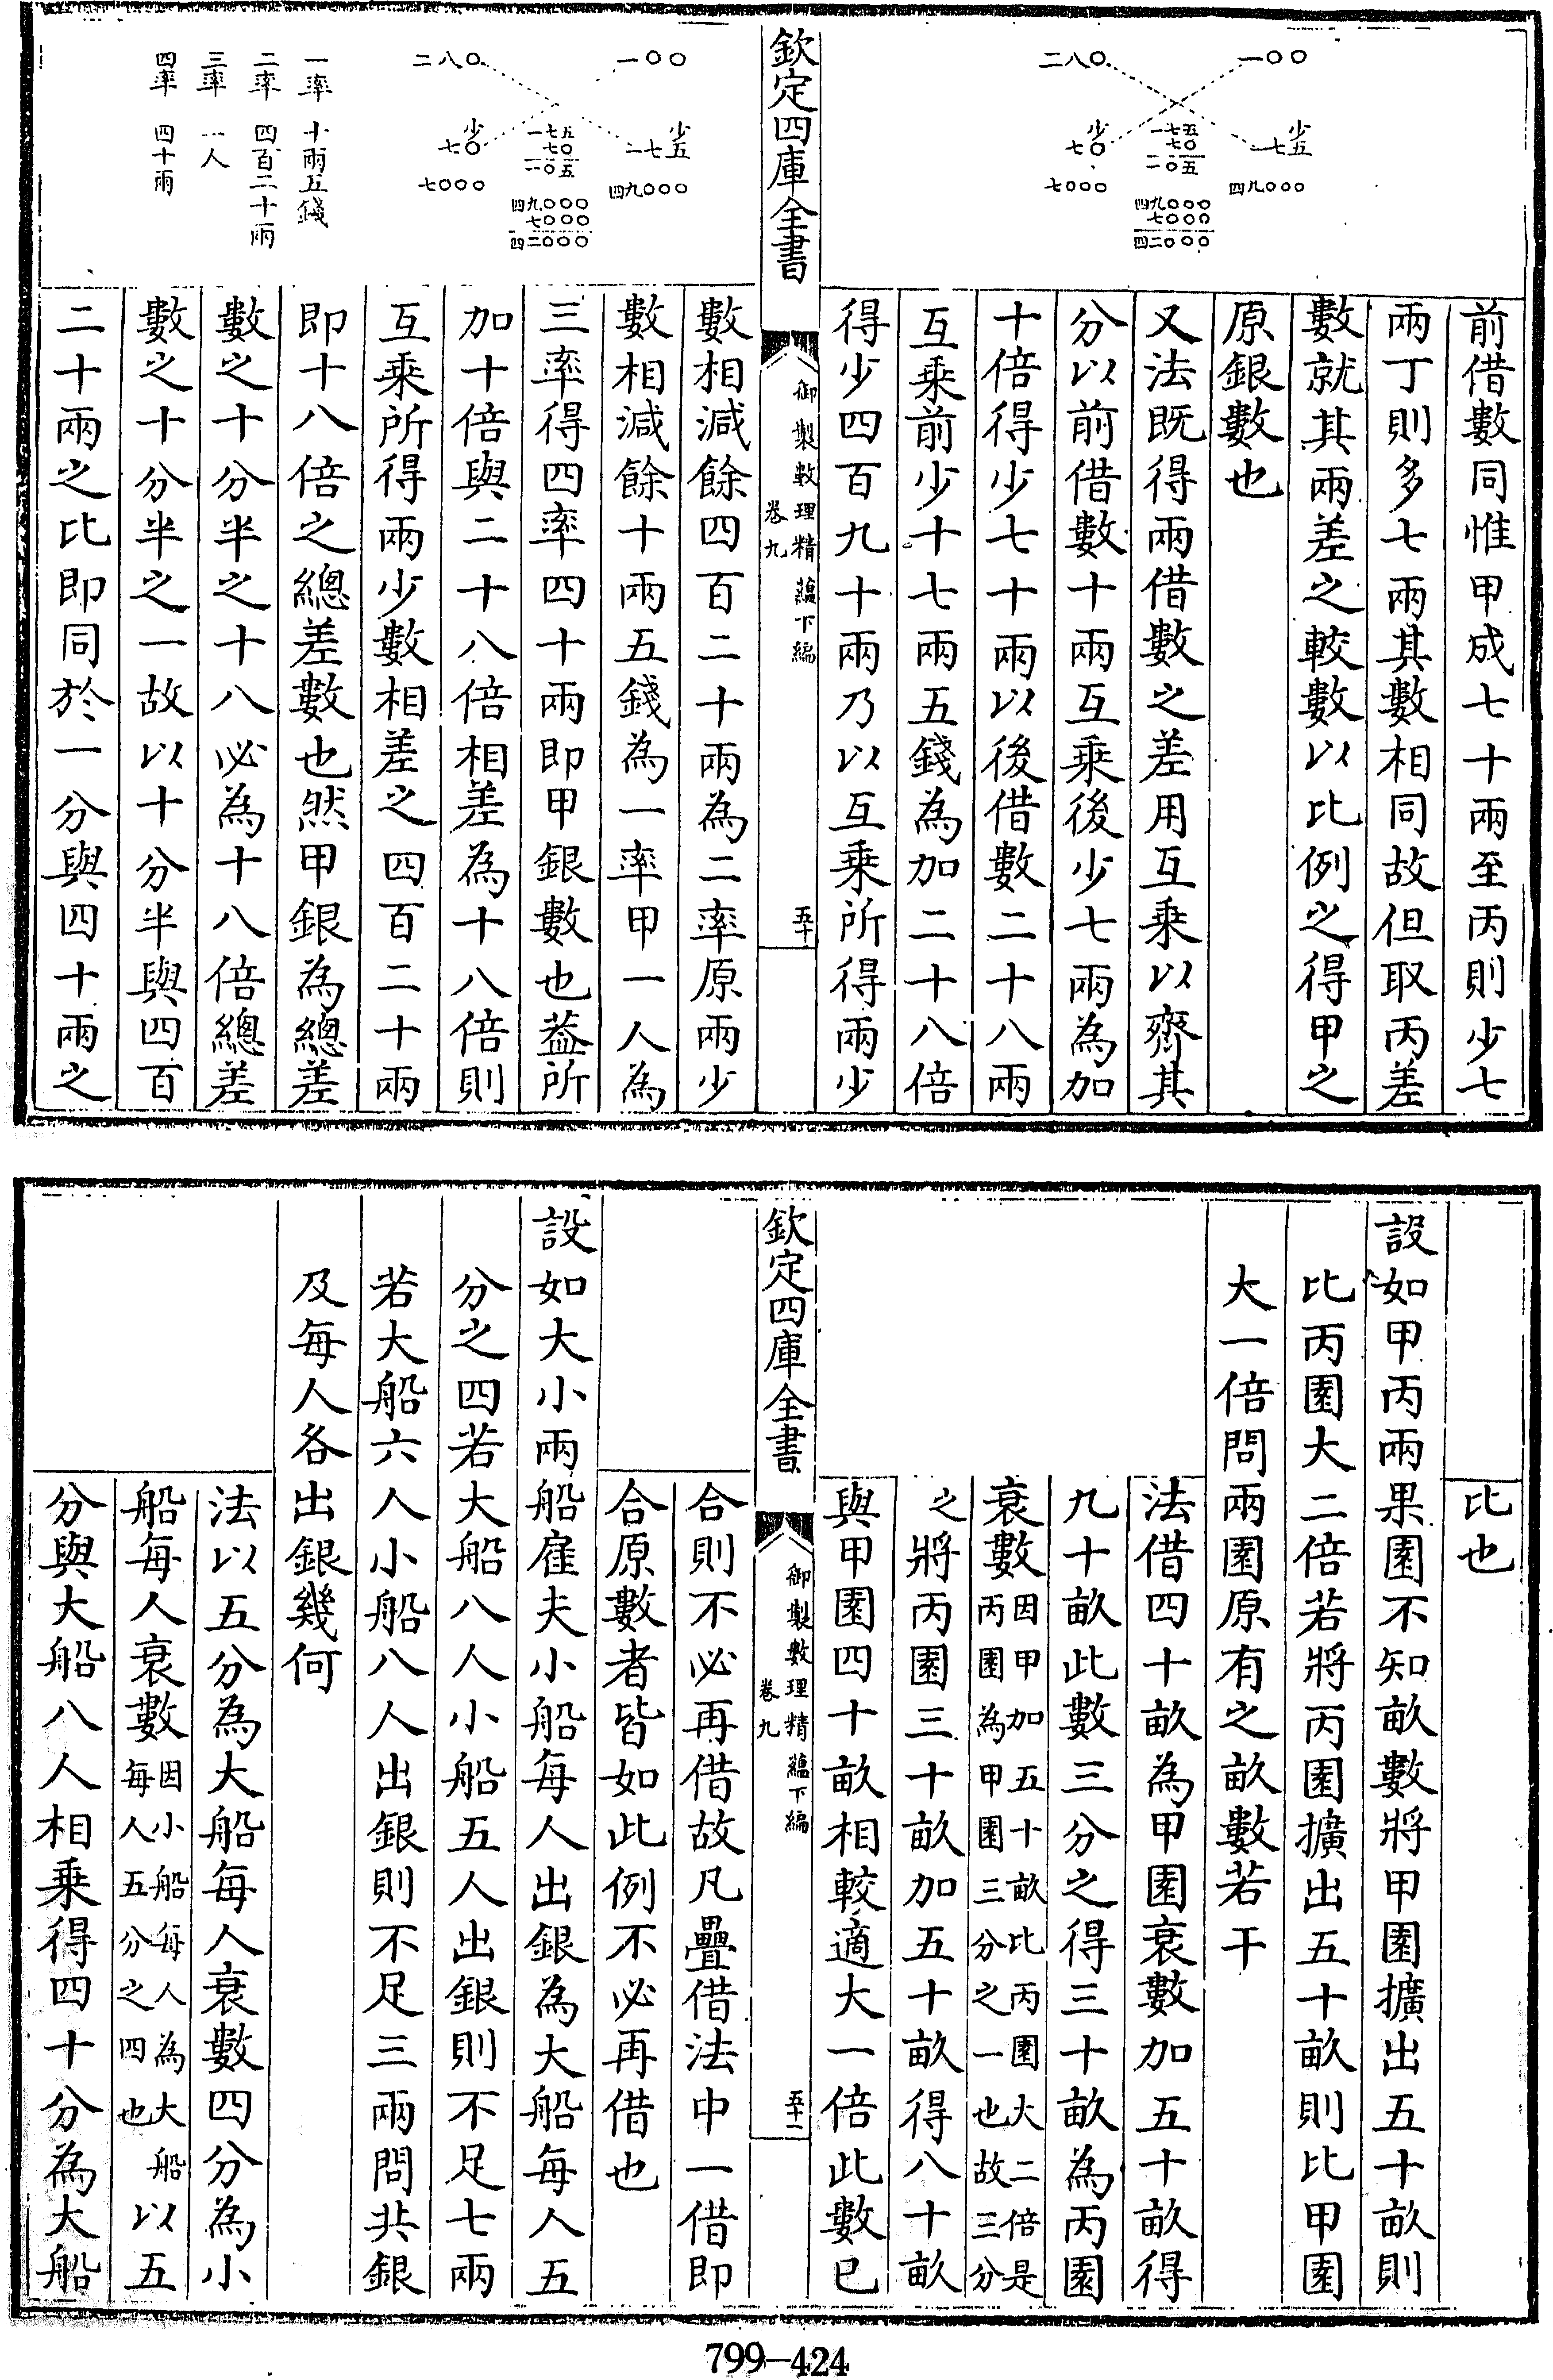 一〇〇
二八〇
少一七五
少七〇
一七五
七〇
一〇五
四九〇〇〇
七〇〇〇
四九〇〇〇
七〇〇〇
四二〇〇〇
前借數同惟甲成七十兩至丙則少七
兩丁則多七兩其數相同故但取丙差
數就其兩差之較數以比例之得甲之
原銀數也
又法既得兩借數之差用互乘以齊其
分以前借數十兩互乘後少七兩為加
十倍得少七十兩以後借數二十八兩
互乘前少十七兩五錢為加二十八倍
得少四百九十兩乃以互乘所得兩少
欽定四庫全書
御製數理精蘊下編
卷九
五十
一〇〇
二八〇
少一七五
少七〇
一七五
七〇
一〇五
四九〇〇〇
七〇〇〇
四九〇〇〇
七〇〇〇
四二〇〇〇
一率 十兩五錢
二率 四百二十兩
三率 一人
四率 四十兩
數相減餘四百二十兩為二率原兩少
數相減餘十兩五錢為一率甲一人為
三率得四率四十兩即甲銀數也蓋所
加十倍與二十八倍相差為十八倍則
互乘所得兩少數相差之四百二十兩
即十八倍之總差數也然甲銀為總差
數之十分半之十八必為十八倍總差
數之十分半之一故以十分半與四百
二十兩之比即同於一分與四十兩之
比也
設如甲丙兩果園不知畝數將甲園擴出五十畝則
比丙園大二倍若將丙園擴出五十畝則比甲園
大一倍問兩園原有之畝數若干
法借四十畝為甲園衰數加五十畝得
九十畝此數三分之得三十畝為丙園
衰數因甲加五十畝比丙園大二倍是丙園為甲園三分之一也故三分
之將丙園三十畝加五十畝得八十畝
與甲園四十畝相較適大一倍此數已
欽定四庫全書
御製數理精蘊下編
卷九
五十一
合則不必再借故凡疊借法中一借即
合原數者皆如此例不必再借也
設如大小兩船雇夫小船每人出銀為大船每人五
分之四若大船八人小船五人出銀則不足七兩
若大船六人小船八人出銀則不足三兩問共銀
及每人各出銀幾何
法以五分為大船每人衰數四分為小
船每人衰數因小船每人為大船每人五分之四也以五
分與大船八人相乘得四十分為大船
799-424